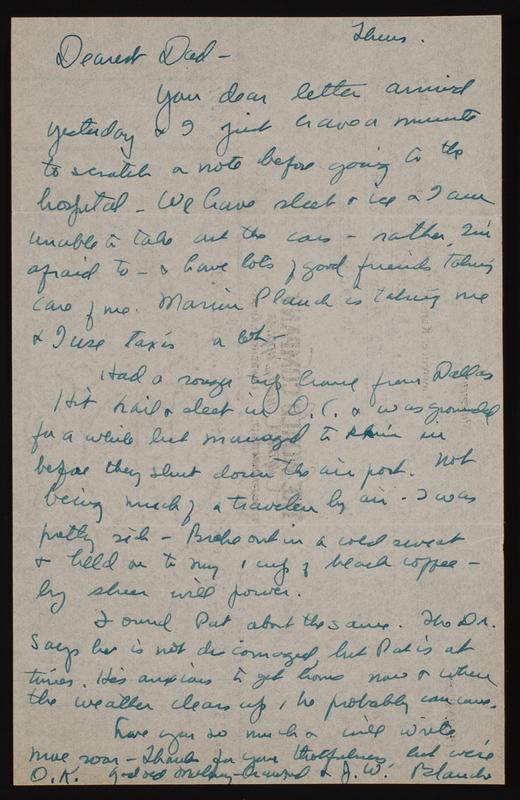 Thurs.
Dearest Dad –
Your dear letter arrived
yesterday & I just have a minute
to scratch a note before going to the
hospital – We have sleet & ice & I am
unable to take out the cars – rather, I'm
afraid to – & have lots of good friends taking
care of me. Marion Plauch is taking me
& I use taxis a lot –
Had a rough trip home from Dallas
Hit hail & sleet in O.C. & was grounded
for a while but managed to in
before they shut down the air port. Not
being much of a traveler by air – I was
pretty sick – Broke out in a cold sweat
& held on to my 1 cup of black coffee –
by sheer will power.
Found Pat about the same. The Dr.
says he is not discouraged, but Pat is at
times. He's anxious to get home now & when
the weather clears up, he probably can come.
Love you so much & will write
more soon – Thanks for your thotfulness, but we're
O.K. & J.W. Blanche